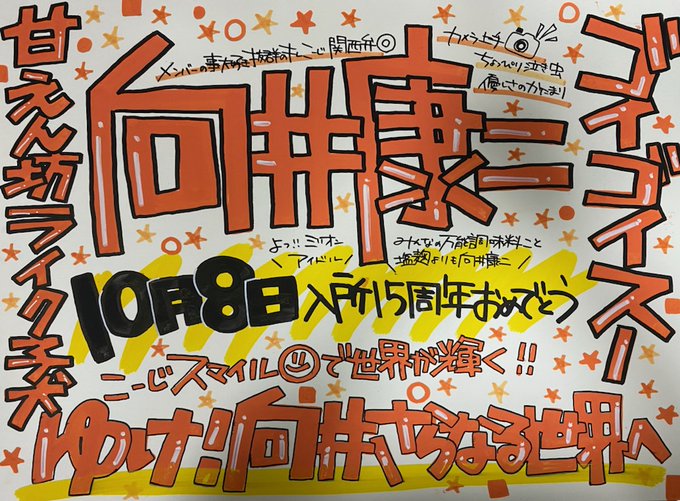 甘えん坊ライク子犬
メンバーの事大好き
関西弁◎
カメラ上手
ちょっぴり泣き虫
優しさのかたまり
ゴイゴイスー
向井康二
よっ!! ミリオン
\アイドル/
みんなの万能調味料こと
\塩麹よりも向井康二/
10月8日 入所15周年おめでとう
こーじスマイル☺で世界が輝く!!
ゆけ!!向井さらなる世界へ